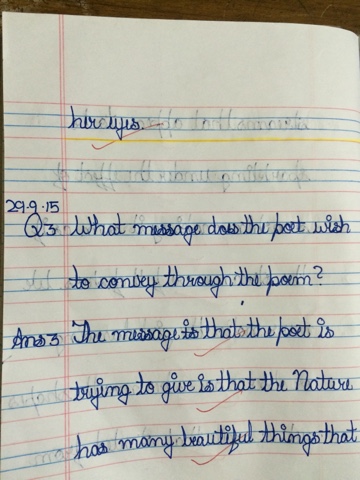 her eyes.
29.9.15
Q3 What message does the poet wish
to convey through the poem?
Ans3 The message is that the poet is
trying to give is that the Nature
has many beautiful things that